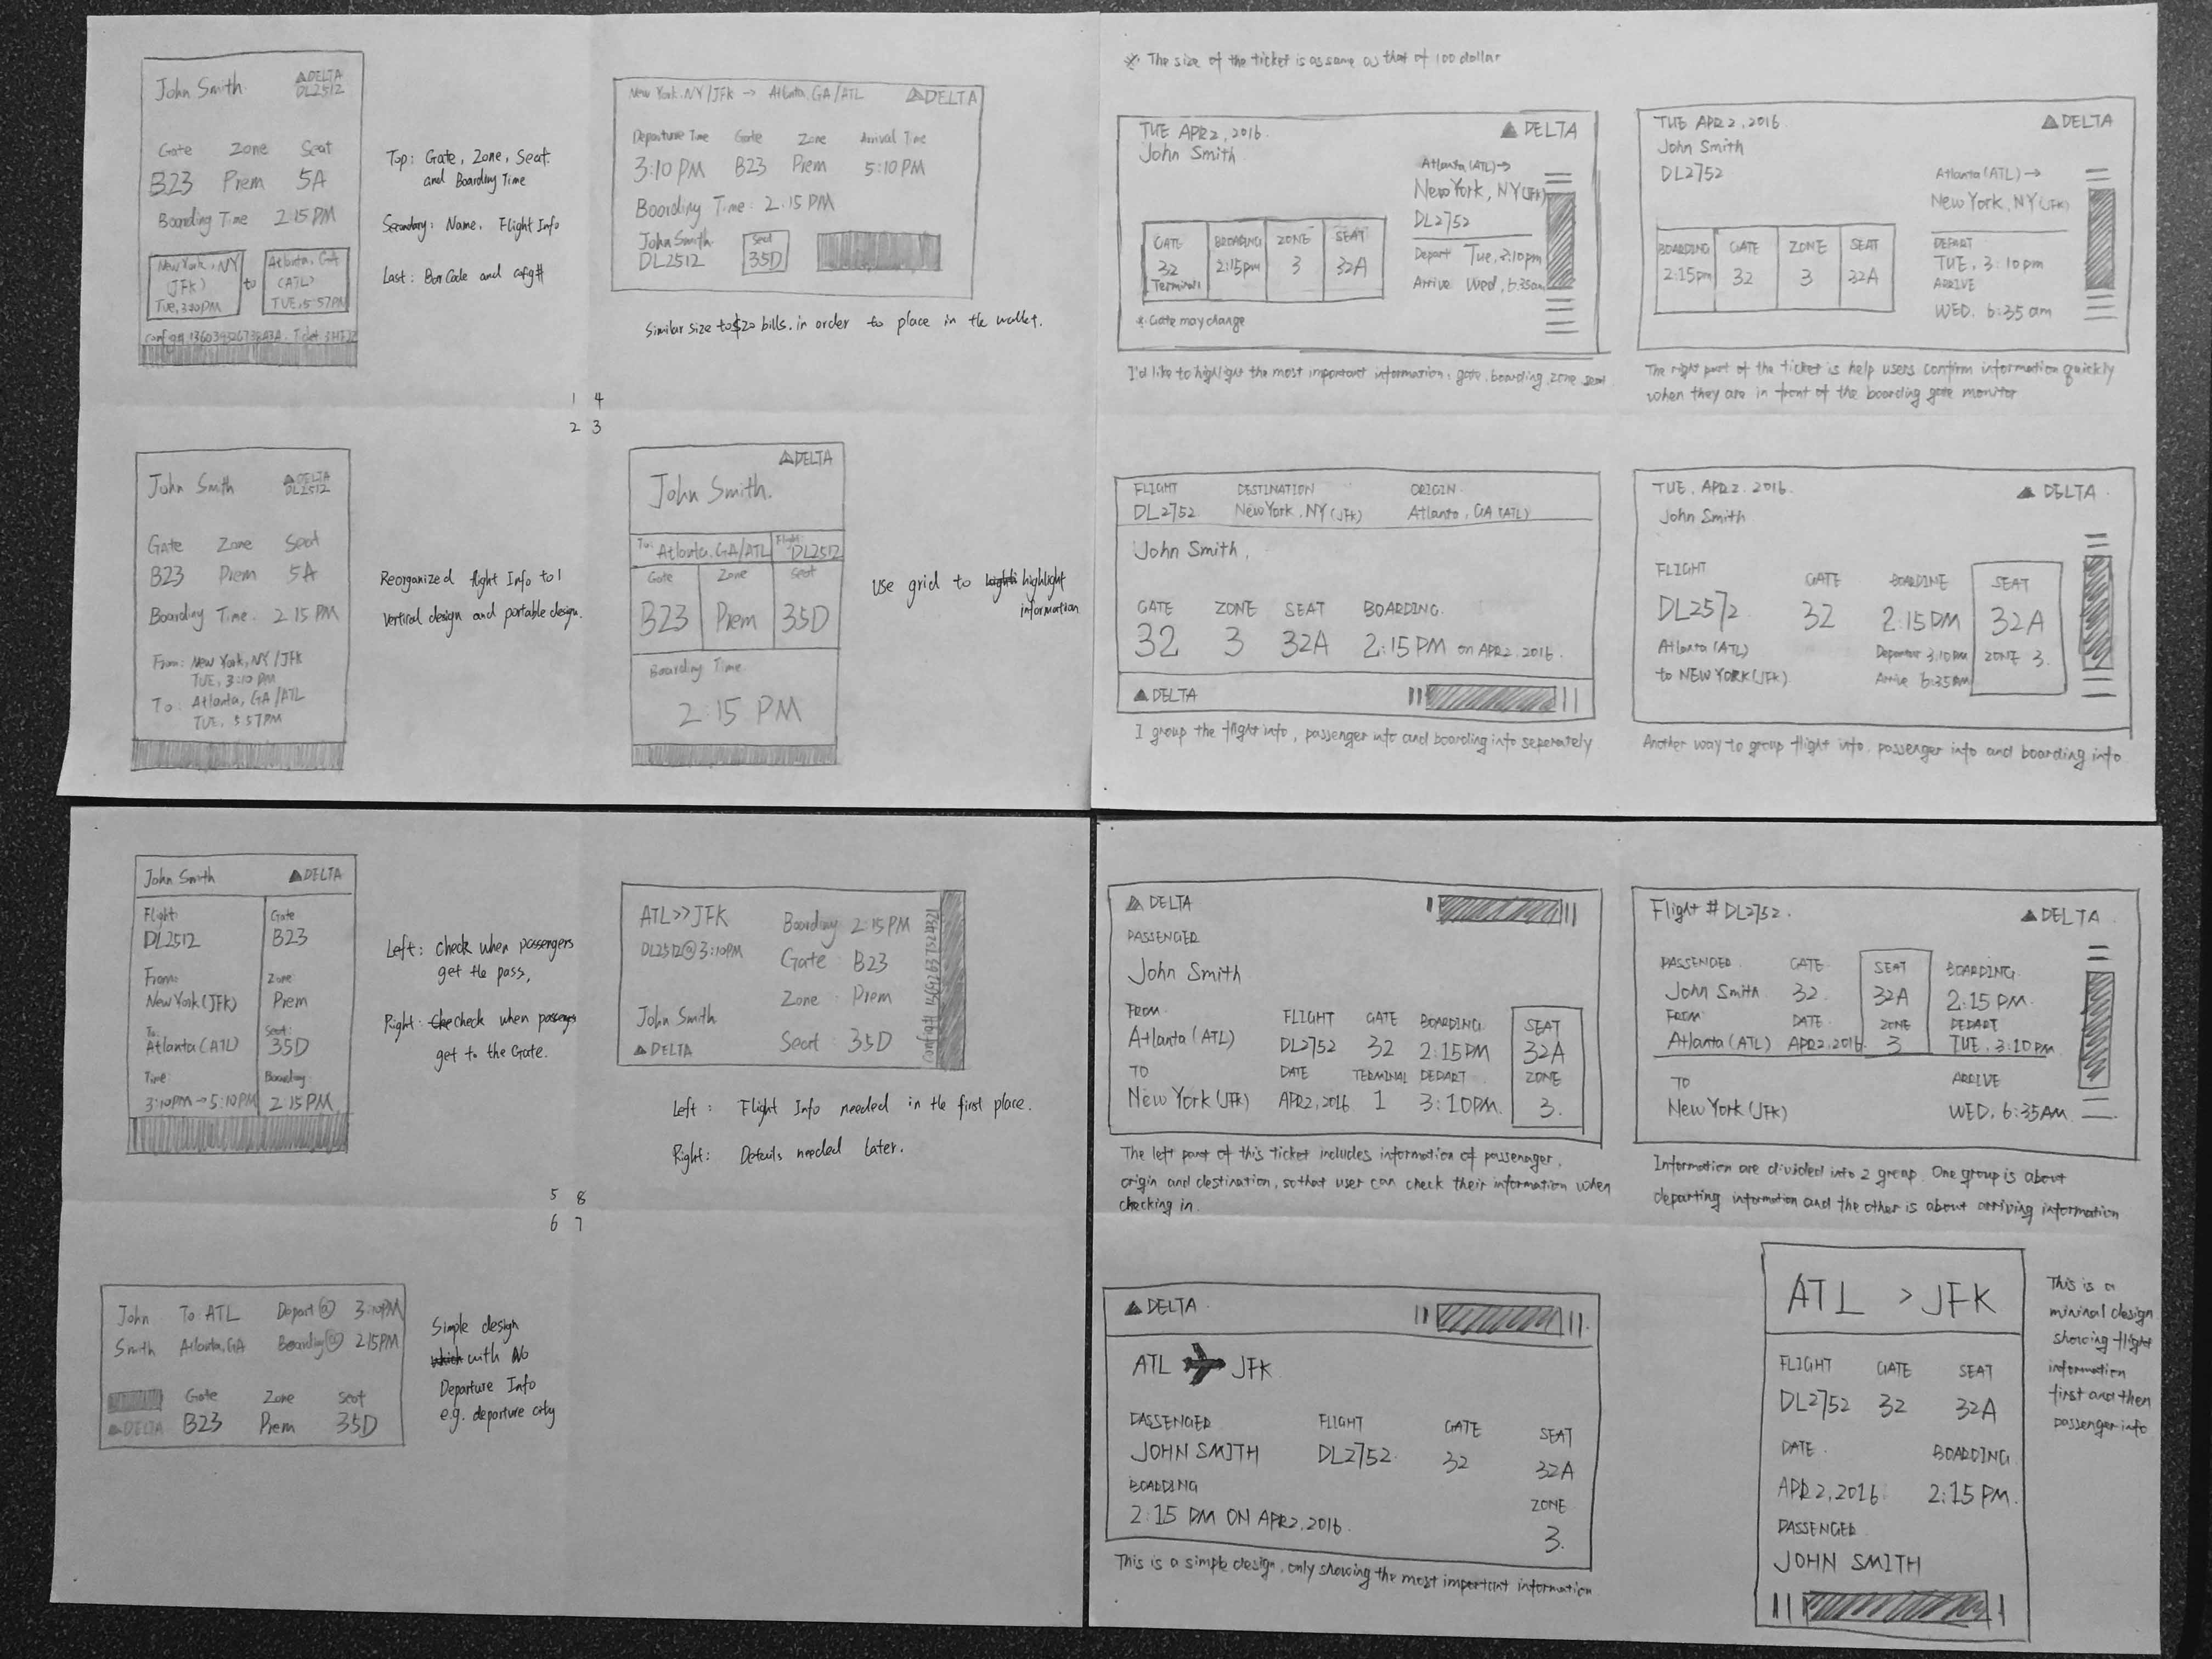 John Smith.
DELTA
DL2512
Gate Zone Seat
B23 Prem 5A
Boarding Time 2:15 PM
New York, NY
(JFK)
to
Atlanta, GA
(ATL)
TUE, 5:57PM
Top: Gate, Zone, Seat.
and Boarding Time
Secondary: Name, Flight Info
Last: Bar Code and
New York, NY/JFK → Atlanta, GA/ATL DELTA
Departure Time Gate Zone Arrival Time
3:10 PM B23 Prem 5:10PM
Boarding Time: 2:15 PM
John Smith
DL2512
Seat
35D
Similar size to $20 bills. in order to place in the wallet.
1 4
2 3
John Smith
DELTA
DL2512
Gate Zone Seat
B23 Prem 5A
Boarding Time. 2 15 PM
From: New York, NY/JFK
TUE, 3:10 PM
To: Atlanta, GA/ATL
TUE, 5 57PM
Reorganized flight Info to
vertical design and portable design.
DELTA
John Smith.
To: Atlanta, GA/ATL
Flight: DL2512
Gate Zone Seat
B23 Prem 35D
Boarding Time
2:15 PM
Use grid to highlight
information
※ The size of the ticket is as same as that of 100 dollar
TUE APR 2, 2016.
DELTA
John Smith
Atlanta (ATL)→
New York, NY (JFK)
DL2752
Depart Tue, 3:10pm
Arrive Wed, 6:35am
GATE BOARDING ZONE SEAT
32 2:15pm 3 32A
Terminal 1
※ Gate may change
I'd like to highlight the most important information: gate, boarding, zone, seat
TUE APR 2, 2016.
DELTA
John Smith
DL2752
Atlanta (ATL) →
New York, NY (JFK)
BOARDING GATE ZONE SEAT
2:15pm 32 3 32A
DEPART
TUE, 3:10pm
ARRIVE
WED. 6:35 am
The right part of the ticket is help users confirm information quickly
when they are in front of the boarding gate monitor
FLIGHT DESTINATION ORIGIN
DL2752 New York, NY (JFK) Atlanta, GA (ATL)
John Smith,
GATE ZONE SEAT BOARDING.
32 3 32A 2:15PM on APR2, 2016.
DELTA
I group the flight info, passenger info and boarding info seperately
TUE. APR2. 2016.
DELTA
John Smith
FLIGHT GATE BOARDING SEAT
DL2572 32 2:15PM 32A
Atlanta (ATL)
to NEW YORK (JFK)
Departure 3:10PM
Arrive 6:35AM
ZONE 3.
Another way to group flight info, passenger info and boarding info
John Smith DELTA
Flight: Gate
DL2512 B23
From: Zone
New York (JFK) Prem
To: Seat:
Atlanta (ATL) 35D
Time: Boarding
3:10PM → 5:10PM 2:15PM
Left: check when passengers
get the pass,
Right: check when passengers
get to the Gate.
ATL>>JFK
DL2512@3:10PM
John Smith
DELTA
Boarding 2:15PM
Gate : B23
Zone : Prem
Seat : 35D
Left: Flight Info needed in the first place.
Right: Details needed later.
5 8
6 7
John To ATL Depart@ 3:10PM
Smith Atlanta, GA Boarding@ 2:15PM
Gate Zone Seat
DELTA B23 Prem 35D
Simple design
which with No
Departure Info
e.g. departure city
DELTA
PASSENGER
John Smith
FROM FLIGHT GATE BOARDING SEAT
Atlanta (ATL) DL2752 32 2:15PM 32A
TO DATE TERMINAL DEPART ZONE
New York (JFK) APR2, 2016 1 3:10PM. 3.
The left part of this ticket includes information of passenager,
origin and destination, so that user can check their information when
checking in.
Flight # DL2752.
DELTA
PASSENGER GATE SEAT BOARDING
John Smith 32. 32A 2:15 PM.
FROM DATE ZONE DEPART
Atlanta (ATL) APR2, 2016. 3 TUE, 3:10PM
TO ARRIVE
New York (JFK) WED, 6:35AM.
Information are divided into 2 group. One group is about
departing information and the other is about arriving information
DELTA
ATL JFK
PASSENGER FLIGHT GATE SEAT
JOHN SMITH DL2752 32 32A
BOARDING ZONE
2:15 PM ON APR2, 2016. 3.
This is a simple design, only showing the most important information
ATL > JFK
FLIGHT GATE SEAT
DL2752 32 32A
DATE. BOARDING
APR 2, 2016. 2:15 PM.
PASSENGER
JOHN SMITH
This is a
minimal design
showing flight
information
first and then
passenger info